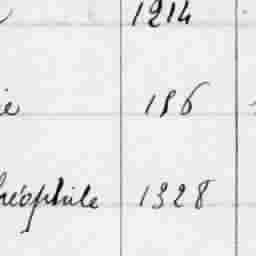 1214
ie 186
héophile 1328